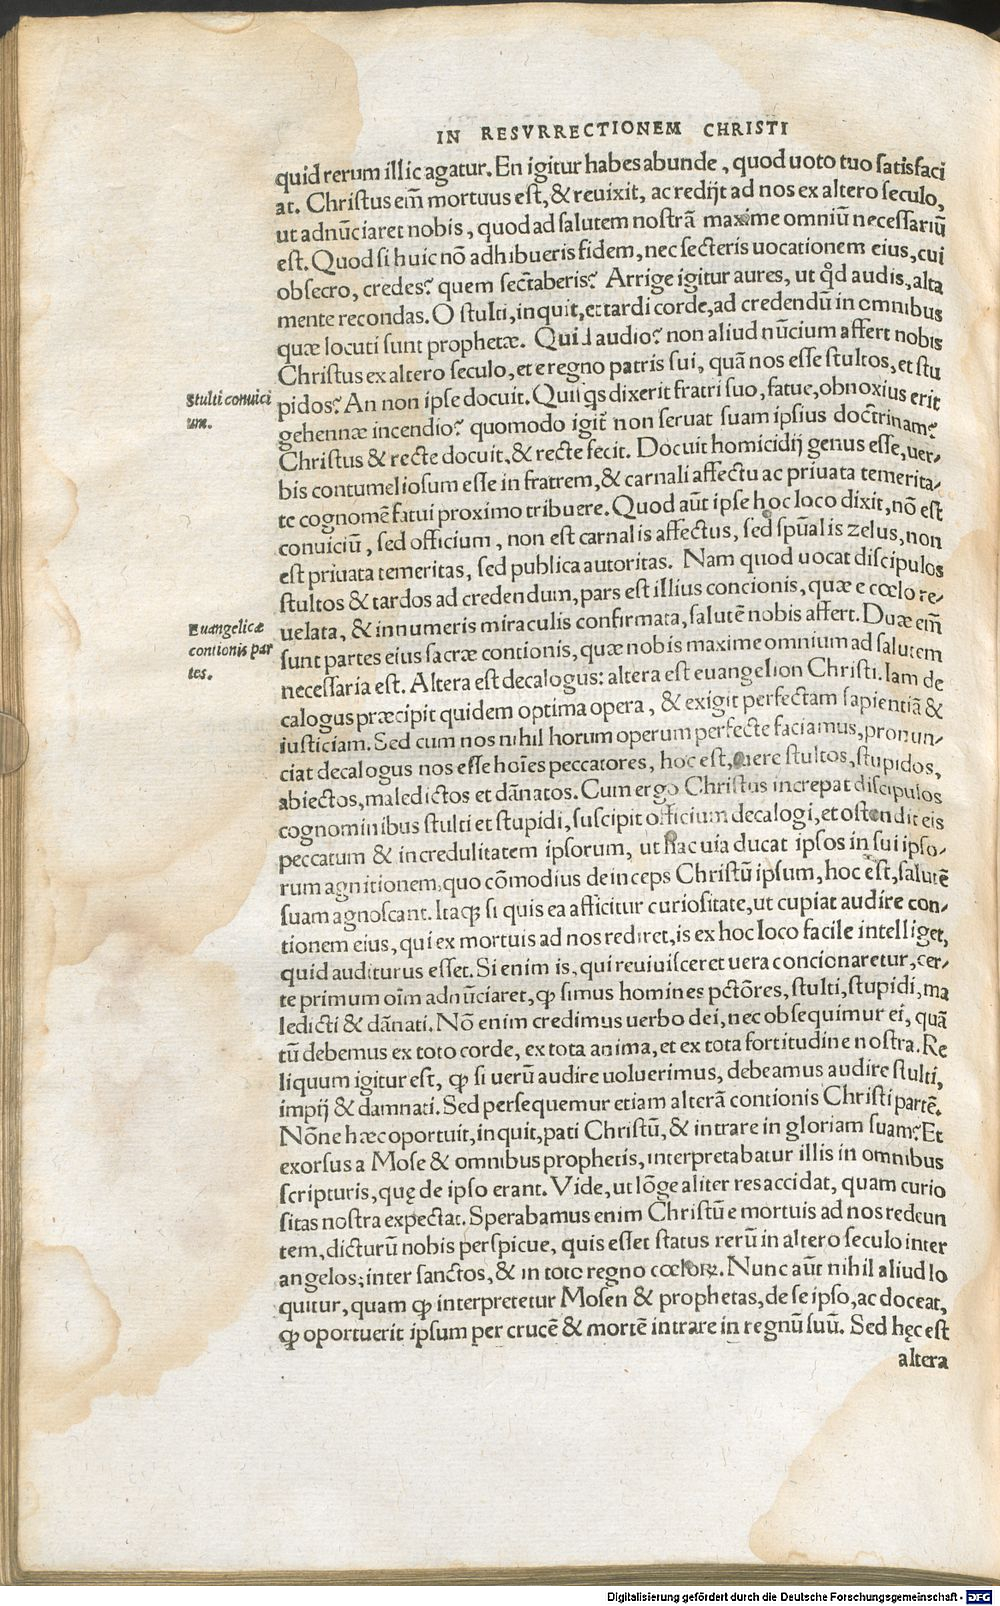 IN RESVRRECTIONEM CHRISTI
quid rerum illic agatur. En igitur habes abunde, quod uoto tuo satisfaci
at. Christus em̄ mortuus est, & reuixit, ac redijt ad nos ex altero seculo,
ut adnūciaret nobis, quod ad salutem nostrā maxime omniū necessariū
est. Quod si huic nō adhibueris fidem, nec secteris uocationem eius, cui
obsecro, credes? quem sectaberis? Arrige igitur aures, ut qd̛ audis, alta
mente recondas. O stulti, inquit, et tardi corde, ad credendū in omnibus
quæ locuti sunt prophetæ. Quid audio? non aliud nūcium affert nobis
Christus ex altero seculo, et e regno patris sui, quā nos esse stultos, et stu
Stulti conuici
um.
pidos? An non ipse docuit. Qui qs dixerit fratri suo, fatue, obnoxius erit
gehennæ incendio? quomodo igit̃ non seruat suam ipsius doctrinam?
Christus & recte docuit, & recte fecit. Docuit homicidij genus esse, uer-
bis contumeliosum esse in fratrem, & carnali affectu ac priuata temerita-
te cognomē fatui proximo tribuere. Quod aūt ipse hoc loco dixit, nō est
conuiciū, sed officium, non est carnalis affectus, sed sp̄ualis zelus, non
est priuata temeritas, sed publica autoritas. Nam quod uocat discipulos
stultos & tardos ad credendum, pars est illius concionis, quæ e cœlo re-
Euangelicæ
contionis par
tes.
uelata, & innumeris miraculis confirmata, salutē nobis affert. Duæ em̄
sunt partes eius sacræ contionis, quæ nobis maxime omnium ad salutem
necessaria est. Altera est decalogus: altera est euangelion Christi. Iam de
calogus præcipit quidem optima opera, & exigit perfectam sapientiā &
iusticiam. Sed cum nos nihil horum operum perfecte faciamus, pronun-
ciat decalogus nos esse hoīes peccatores, hoc est, uere stultos, stupidos,
abiectos, maledictos et dānatos. Cum ergo Christus increpat discipulos
cognominibus stulti et stupidi, suscipit officium decalogi, et ostendit eis
peccatum & incredulitatem ipsorum, ut hac uia ducat ipsos in sui ipso-
rum agnitionem, quo cōmodius deinceps Christū ipsum, hoc est, salutē
suam agnoscant. Itaqꝫ si quis ea afficitur curiositate, ut cupiat audire con-
tionem eius, qui ex mortuis ad nos rediret, is ex hoc loco facile intelliget,
quid auditurus esset. Si enim is, qui reuiuisceret uera concionaretur, cer-
te primum oīm adnūciaret, ꝙ simus homines pctōres, stulti, stupidi, ma
ledicti & dānati. Nō enim credimus uerbo dei, nec obsequimur ei, quā
tū debemus ex toto corde, ex tota anima, et ex tota fortitudine nostra. Re
liquum igitur est, ꝙ si uerū audire uoluerimus, debeamus audire stulti,
impij & damnati. Sed persequemur etiam alterā contionis Christi partē.
Nōne hæc oportuit, inquit, pati Christū, & intrare in gloriam suam? Et
exorsus a Mose & omnibus prophetis, interpretabatur illis in omnibus
scripturis, quę de ipso erant. Vide, ut lōge aliter res accidat, quam curio
sitas nostra expectat. Sperabamus enim Christū e mortuis ad nos redeun
tem, dicturū nobis perspicue, quis esset status rerū in altero seculo inter
angelos, inter sanctos, & in toto regno cœloꝝ. Nunc aūt nihil aliud lo
quitur, quam ꝙ interpretetur Mosen & prophetas, de se ipso, ac doceat,
ꝙ oportuerit ipsum per crucē & mortē intrare in regnū suū. Sed hęc est
altera
Digitalisierung gefördert durch die Deutsche Forschungsgemeinschaft - DFG